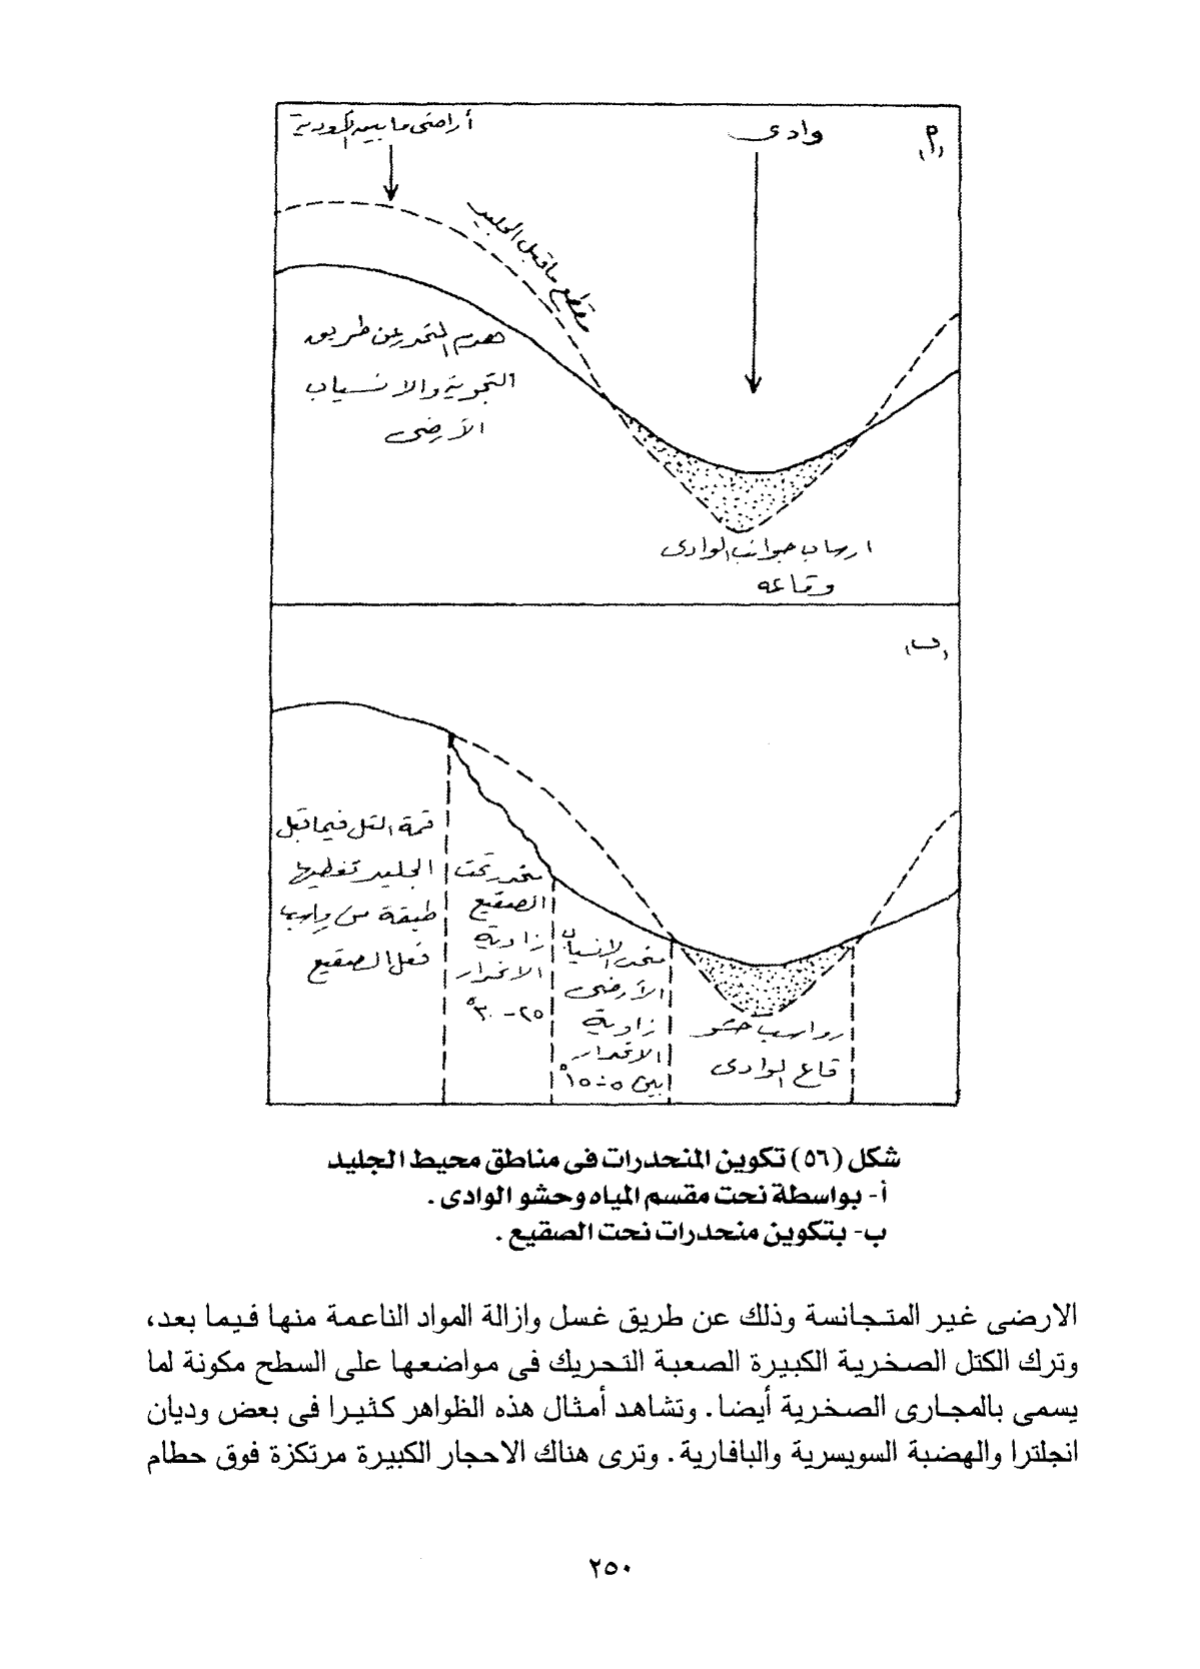 (أ)
وادى
أراضى ما بين الأودية
مقطع ماقبل الجليد
هدم المنحدر عن طريق
التجوية والانسياب
الأرضى
ارساب جوانب الوادى
وقاعه
(ب)
قمة التل فيما قبل
الجليد تغطيها
طبقة من رواسب
فعل الصقيع
منحدر نحت
الصقيع
زاوية
الانحدار
٢٥-٣٠°
منحدر الانسياب
الأرضى
زاوية
الانحدار
بين ٥-١٥°
رواسب حشو
قاع الوادى
شكل (٥٦) تكوين المنحدرات فى مناطق محيط الجليد
أ- بواسطة نحت مقسم المياه وحشو الوادى .
ب- بتكوين منحدرات نحت الصقيع .
الارضى غير المتجانسة وذلك عن طريق غسل وازالة المواد الناعمة منها فيما بعد،
وترك الكتل الصخرية الكبيرة الصعبة التحريك فى مواضعها على السطح مكونة لما
يسمى بالمجارى الصخرية أيضا . وتشاهد أمثال هذه الظواهر كثيرا فى بعض وديان
انجلترا والهضبة السويسرية والبافارية . وترى هناك الاحجار الكبيرة مرتكزة فوق حطام
٢٥٠